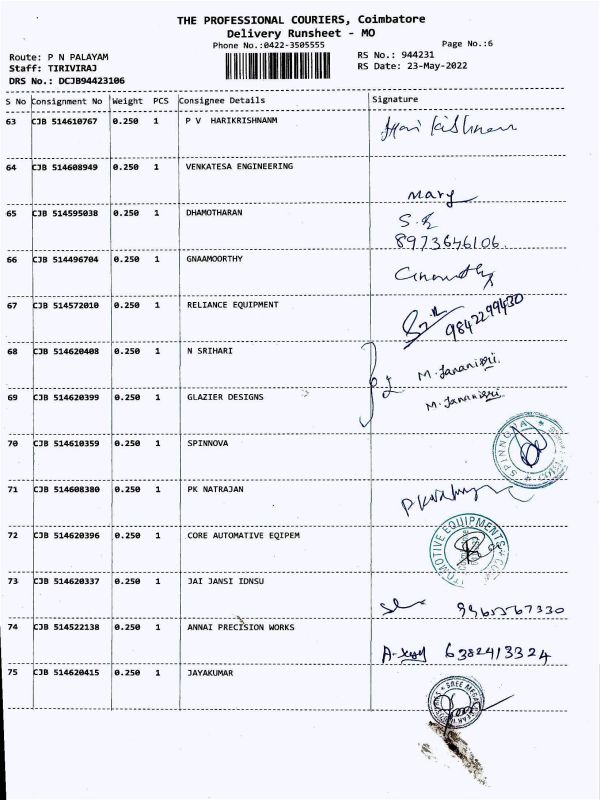 THE PROFESSIONAL COURIERS, Coimbatore
Delivery Runsheet - MO
Phone No.:0422-3505555
Page No.:6
Route: P N PALAYAM
Staff: TIRIVIRAJ
DRS No.: DCJB94423106
RS No.: 944231
RS Date: 23-May-2022
S No Consignment No Weight PCS Consignee Details Signature
63 CJB 514610767 0.250 1 P V HARIKRISHNANM Hari Kishnan
64 CJB 514608949 0.250 1 VENKATESA ENGINEERING
Mary
65 CJB 514595038 0.250 1 DHAMOTHARAN S.K
8973646106.
66 CJB 514496704 0.250 1 GNAAMOORTHY
67 CJB 514572010 0.250 1 RELIANCE EQUIPMENT 9842299430
68 CJB 514620408 0.250 1 N SRIHARI M. Jananisri.
69 CJB 514620399 0.250 1 GLAZIER DESIGNS M. Jananisri.
70 CJB 514610359 0.250 1 SPINNOVA SPINNOVA
71 CJB 514608380 0.250 1 PK NATRAJAN
72 CJB 514620396 0.250 1 CORE AUTOMATIVE EQIPEM TOMOTIVE EQUIPMENTS
73 CJB 514620337 0.250 1 JAI JANSI IDNSU
74 CJB 514522138 0.250 1 ANNAI PRECISION WORKS 6382413324
75 CJB 514620415 0.250 1 JAYAKUMAR SREE MEGA